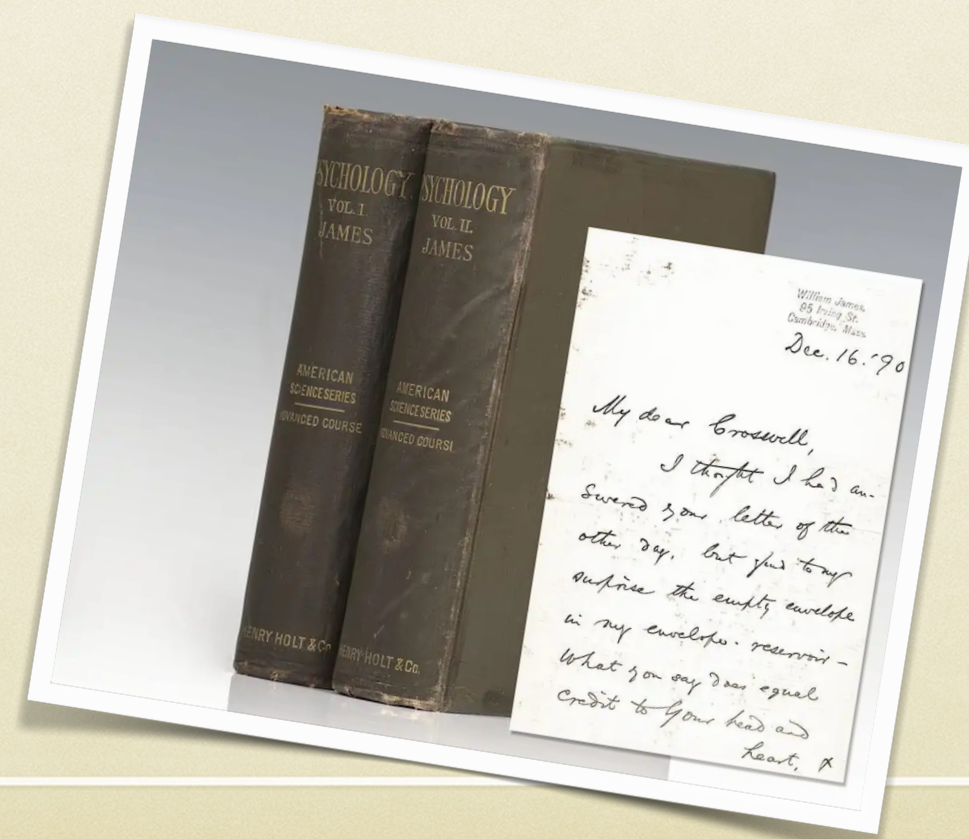 SYCHOLOGY
VOL. I.
JAMES
AMERICAN
SCIENCE SERIES
DVANCED COURSE
HENRY HOLT & Co
SYCHOLOGY
VOL. II.
JAMES
AMERICAN
SCIENCE SERIES
DVANCED COURSE
HENRY HOLT & Co.
William James,
95 Irving St.
Cambridge, Mass.
Dec. 16. '90
My dear Croswell,
I thought I had an-
swered your letter of the
other day, but find to my
surprise the empty envelope
in my envelope-reservoir -
What you say does equal
credit to your head and
heart, x